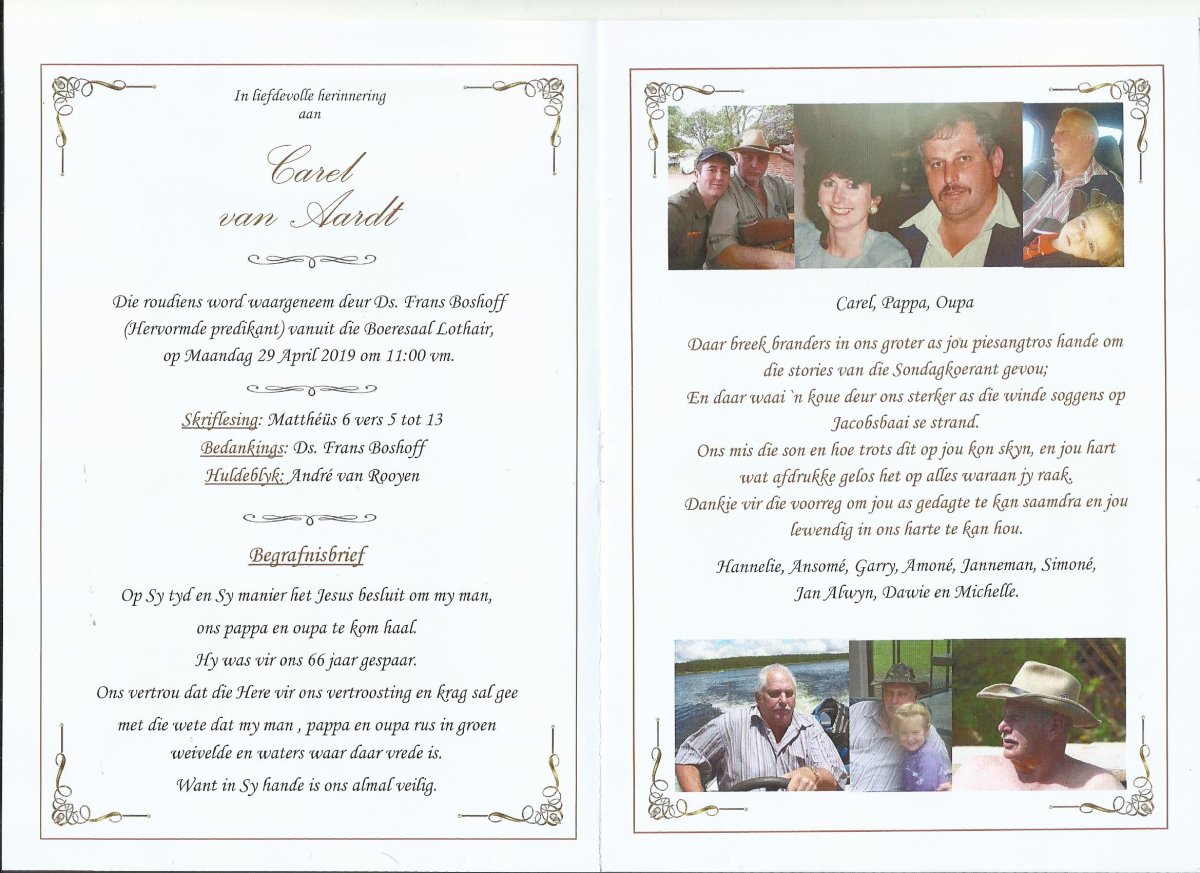 In liefdevolle herinnering
aan
Carel
van Aardt
Die roudiens word waargeneem deur Ds. Frans Boshoff
(Hervormde predikant) vanuit die Boeresaal Lothair,
op Maandag 29 April 2019 om 11:00 vm.
Skriflesing: Matthéüs 6 vers 5 tot 13
Bedankings: Ds. Frans Boshoff
Huldeblyk: André van Rooyen
Begrafnisbrief
Op Sy tyd en Sy manier het Jesus besluit om my man,
ons pappa en oupa te kom haal.
Hy was vir ons 66 jaar gespaar.
Ons vertrou dat die Here vir ons vertroosting en krag sal gee
met die wete dat my man , pappa en oupa rus in groen
weivelde en waters waar daar vrede is.
Want in Sy hande is ons almal veilig.
Carel, Pappa, Oupa
Daar breek branders in ons groter as jou piesangtros hande om
die stories van die Sondagkoerant gevou;
En daar waai `n koue deur ons sterker as die winde soggens op
Jacobsbaai se strand.
Ons mis die son en hoe trots dit op jou kon skyn, en jou hart
wat afdrukke gelos het op alles waraan jy raak.
Dankie vir die voorreg om jou as gedagte te kan saamdra en jou
lewendig in ons harte te kan hou.
Hannelie, Ansomé, Garry, Amoné, Janneman, Simoné,
Jan Alwyn, Dawie en Michelle.